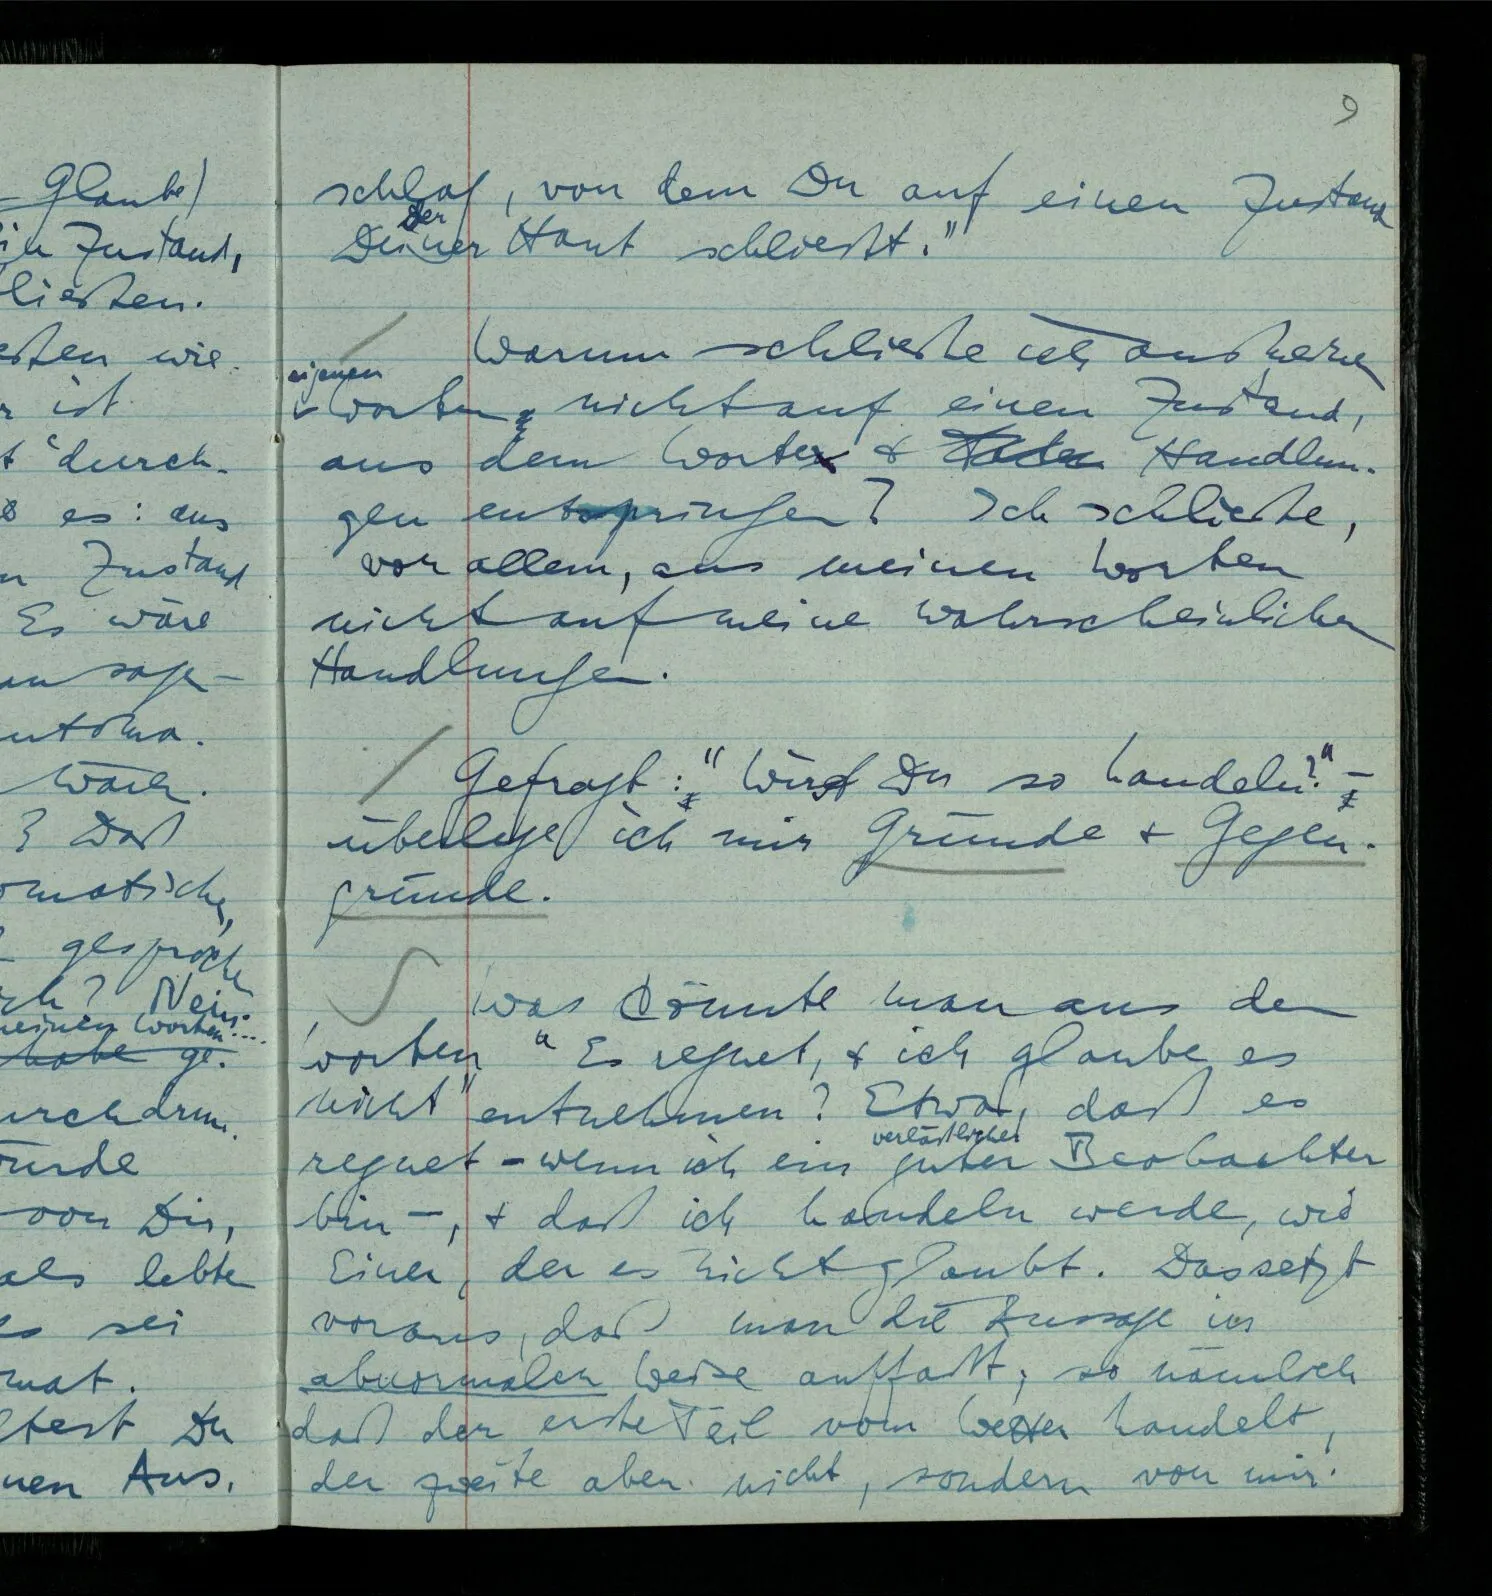 9
Glaube)
Zustand,
ließen.
wie
ist
durch-
es: aus
Zustand
Es wäre
sage
automa-
wäre.
? Daß
omatische,
gesproche
? Nein
meinen Worten....
habe ge-
urchdrun-
ürde
von Dir,
als lebte
es sei
mat.
test Du
nen Aus-
schlag, von dem Du auf einen Zustand
der
Deiner Haut schließt."
/ Warum schließe ich aus meinen
eigenen
Worten nicht auf einen Zustand,
aus dem Worte & Handlun-
gen entspringen? Ich schließe,
vor allem, aus meinen Worten
nicht auf meine wahrscheinlichen
Handlungen.
/ Gefragt: "Wirst Du so handeln?" –
überlege ich mir Gründe & Gegen-
gründe.
Was könnte man aus den
Worten "Es regnet, & ich glaube es
nicht" entnehmen? Etwa, daß es
verläßlicher
regnet – wenn ich ein guter Beobachter
bin –, & daß ich handeln werde, wie
Einer, der es nicht glaubt. Das setzt
voraus, daß man die Aussage in
abnormalen Weise auffaßt; so nämlich
daß der erste Teil vom Wetter handelt,
der zweite aber nicht, sondern von mir.